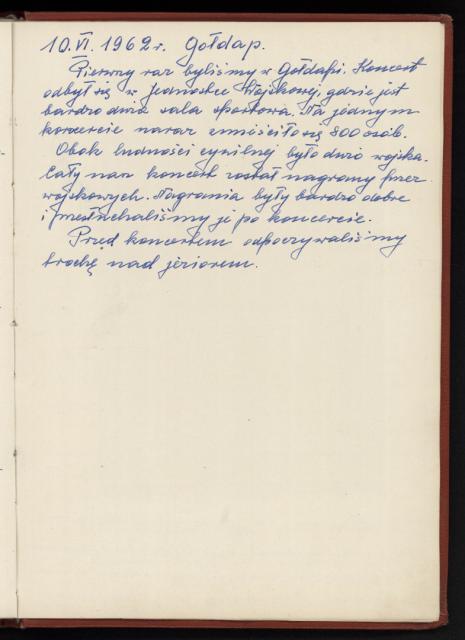 10.VI.1962r. Gołdap.
Pierwszy raz byliśmy w Gołdapi. Koncert
odbył się w Jednostce Wojskowej, gdzie jest
bardzo duża sala sportowa. Na jednym
koncercie naraz zmieściło się 800 osób.
Obok ludności cywilnej było dużo wojska.
Cały nasz koncert został nagrany przez
wojskowych. Nagrania były bardzo dobre
i przesłuchaliśmy je po koncercie.
Przed koncertem odpoczywaliśmy
trochę nad jeziorem.